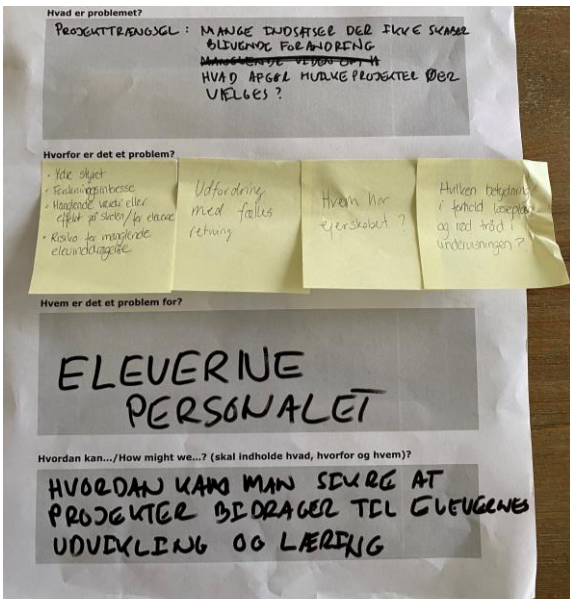 Hvad er problemet?
PROJEKTTRÆNGSEL : MANGE INDSATSER DER IKKE SKABER
BLIVENDE FORANDRING
MANGLENDE VIDEN OM
HVAD AFGØR HVILKE PROJEKTER DER
VÆLGES ?
Hvorfor er det et problem?
• Ydre styret
• Forskningsinteresse
• Manglende værdi eller
effekt på skolen/for eleverne
• Risiko for manglende
elevinddragelse
Udfordring
med fælles
retning
Hvem har
ejerskabet ?
Hvilken betydning
i forhold læseplan
og rød tråd i
undervisningen ?
Hvem er det et problem for?
ELEVERNE
PERSONALET
Hvordan kan.../How might we...? (skal indholde hvad, hvorfor og hvem)?
HVORDAN KAN MAN SIKRE AT
PROJEKTER BIDRAGER TIL ELEVERNES
UDVIKLING OG LÆRING